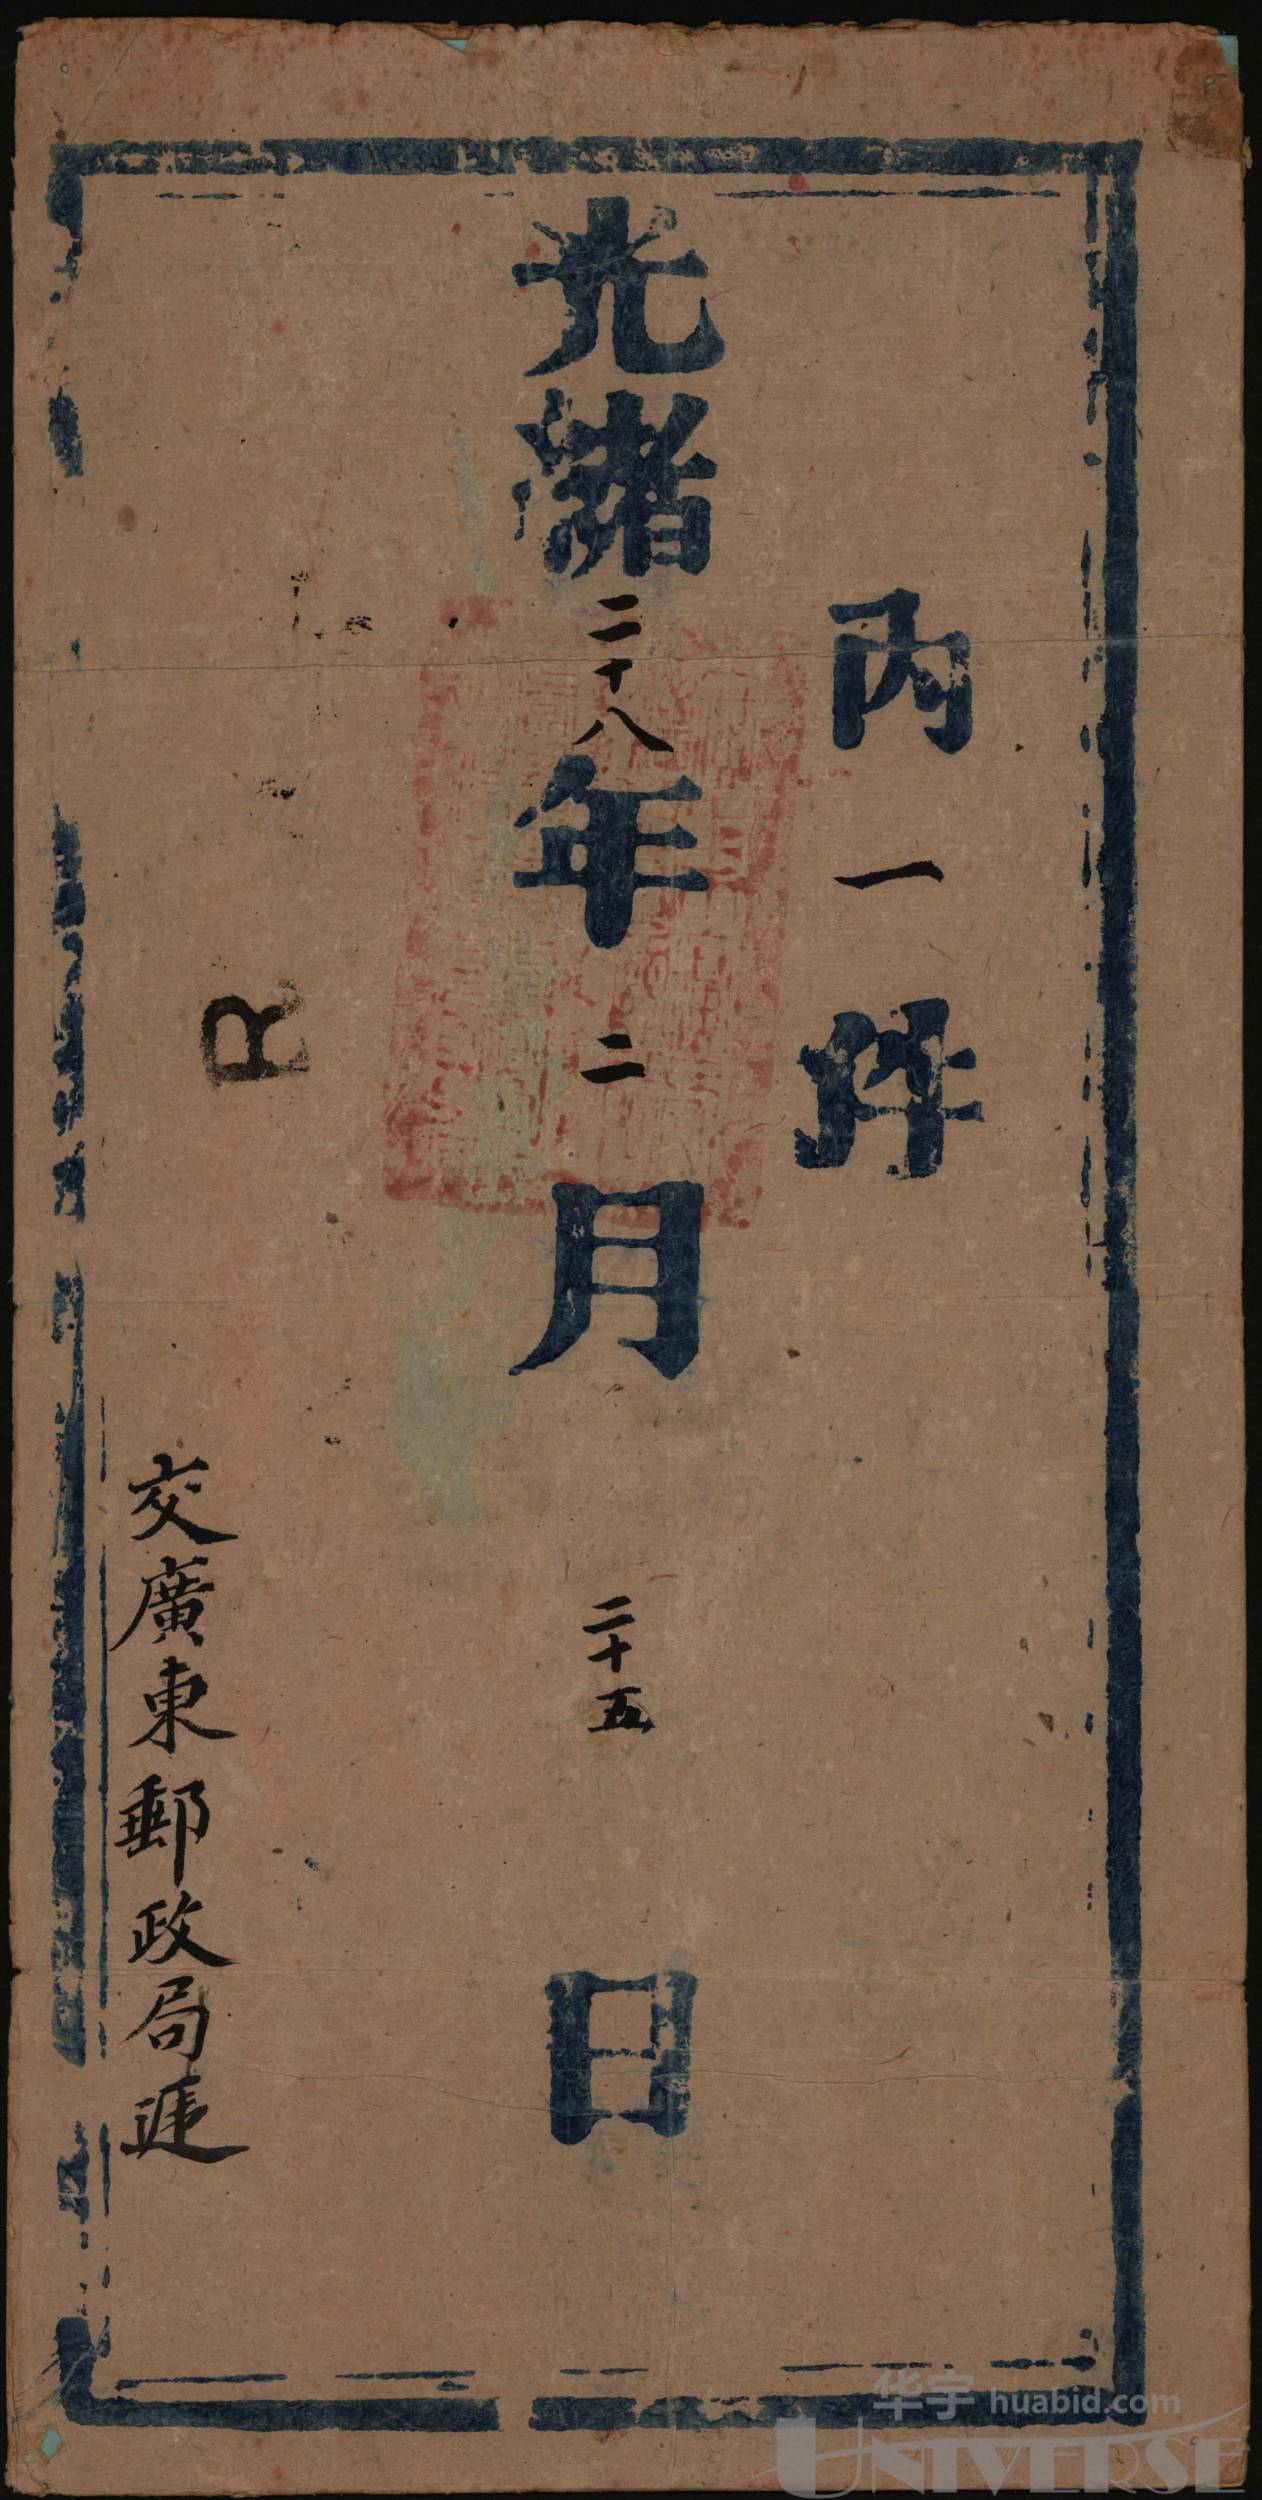 內一件
光緒二十八年二月二十五日
R
交廣東郵政局遞
华宇 huabid.com
UNIVERSE